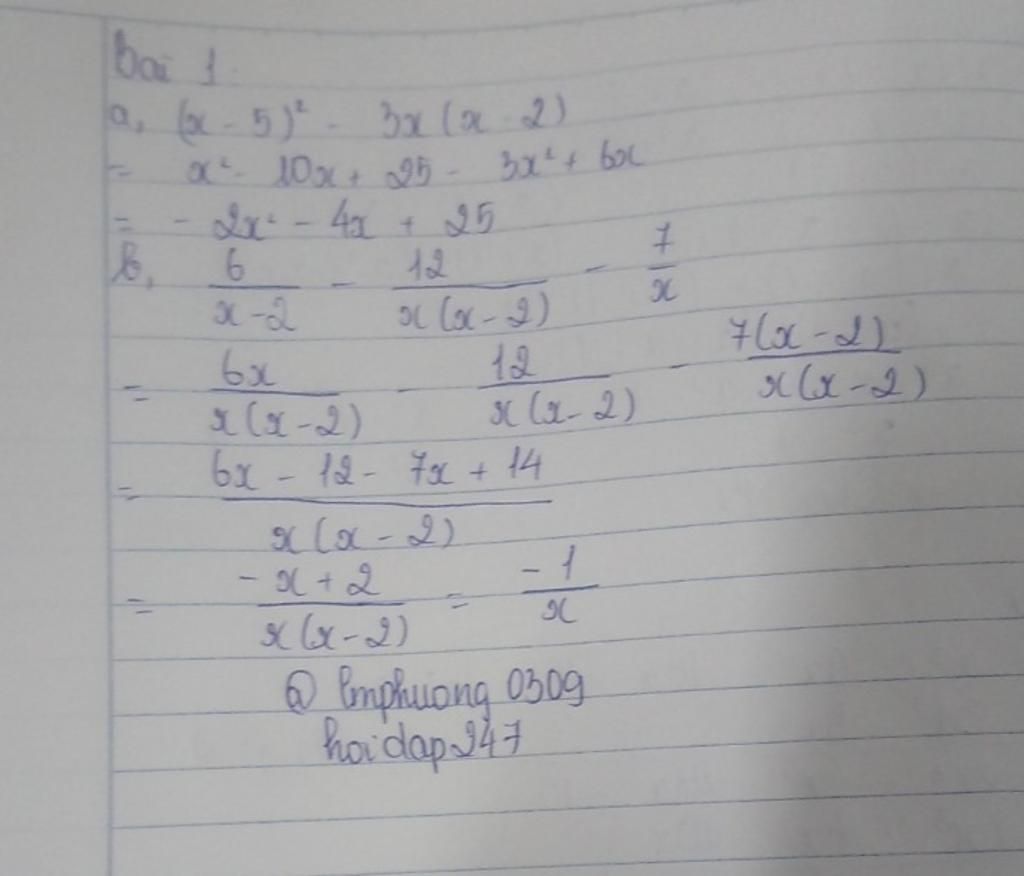 Bài 1.
a, (x - 5)² - 3x(x - 2)
= x² - 10x + 25 - 3x² + 6x
= - 2x² - 4x + 25
b, 6/(x - 2) - 12/(x(x - 2)) - 7/x
= 6x/(x(x - 2)) - 12/(x(x - 2)) - 7(x - 2)/(x(x - 2))
= (6x - 12 - 7x + 14)/(x(x - 2))
= (- x + 2)/(x(x - 2)) = - 1/x
@ lmphuong 0309
hoidap247